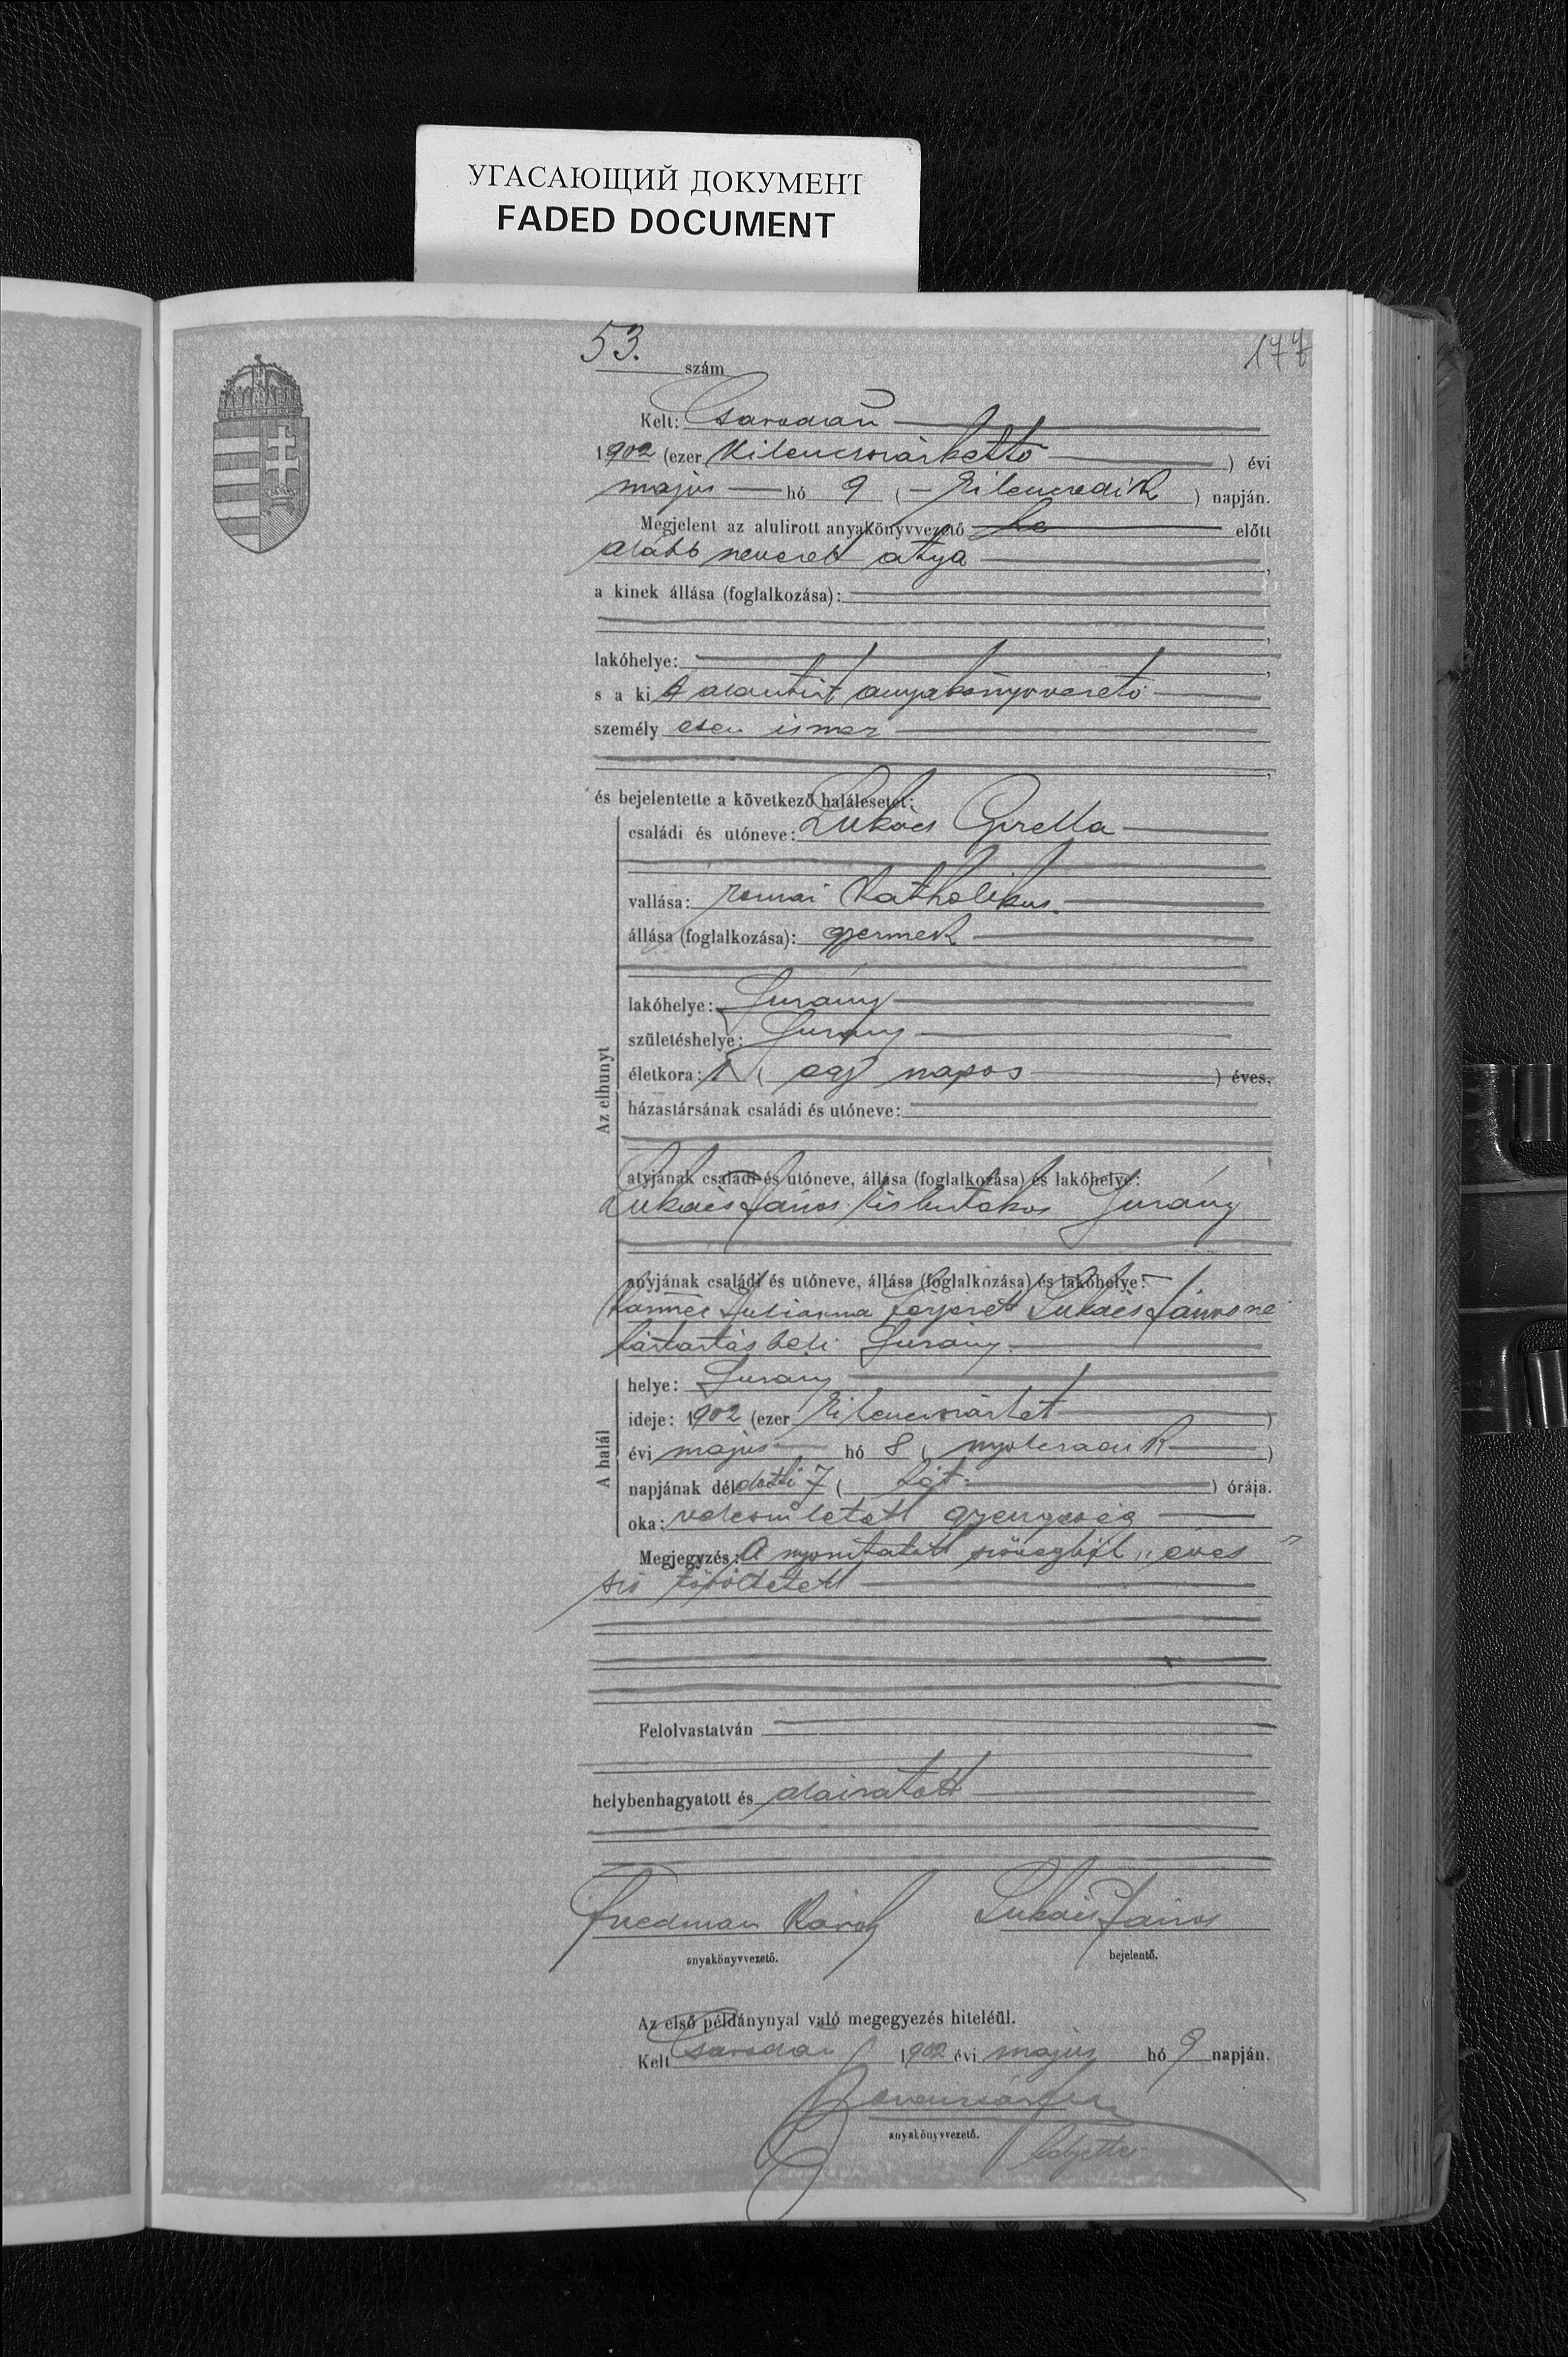 УГАСАЮЩИЙ ДОКУМЕНТ
FADED DOCUMENT
53. szám
177
Kelt: Csarodán
1902 (ezer kilenczszázkettő) évi
május hó 9 (kilenczedik) napján.
Megjelent az alulirott anyakönyvvezető előtt
alább nevezett atya,
a kinek állása (foglalkozása):
lakóhelye:
s a kit alantirt anyakönyvvezető
személyesen ismer
és bejelentette a következő halálesetet:
Az elhunyt
családi és utóneve: Lukács Gizella
vallása: római katholikus.
állása (foglalkozása): gyermek
lakóhelye: Surány
születéshelye: Surány
életkora: 1 (egy napos) éves,
házastársának családi és utóneve:
atyjának családi és utóneve, állása (foglalkozása) és lakóhelye:
Lukács János kisbirtokos Surány
anyjának családi és utóneve, állása (foglalkozása) és lakóhelye:
Julianna férjezett Lukács Jánosné
háztartásbeli Surány.
A halál
helye: Surány
ideje: 1902 (ezer kilenczszázket)
évi május hó 8 (nyolczadik)
napjának délelőtti 7 (hét) órája.
oka: veleszületett gyengeség
Megjegyzés: A nyomtatott szövegből „éves"
szó töröltetett
Felolvastatván
helybenhagyatott és aláiratott
Friedman Károly
Lukács János
anyakönyvvezető.
bejelentő.
Az első példánynyal való megegyezés hiteléül.
Kelt Csarodán 1902 évi május hó 9 napján.
anyakönyvvezető.